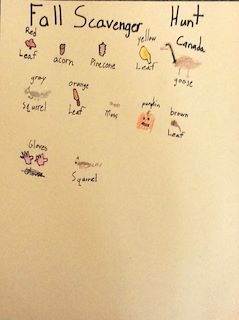 Fall Scavenger Hunt
Red
Leaf
acorn
Pinecone
yellow
Leaf
Canada
goose
gray
Squirrel
orange
Leaf
Moss
pumpkin
brown
Leaf
Gloves
Squirrel